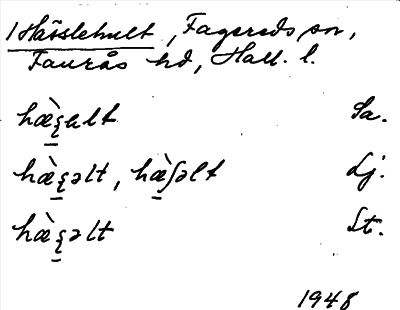 1 Hässlehult, Fagereds sn,
Faurås hd, Hall. l.
hæ̀ʂult Sa.
hæ̀ʂəlt, hæ̀ʃəlt Lj.
hæ̀ʂəlt St.
1948